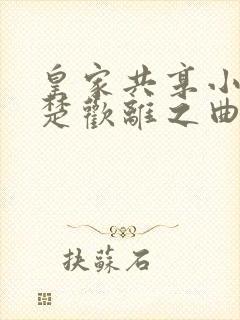 皇家共享小
楚歡離之曲
扶蘇石